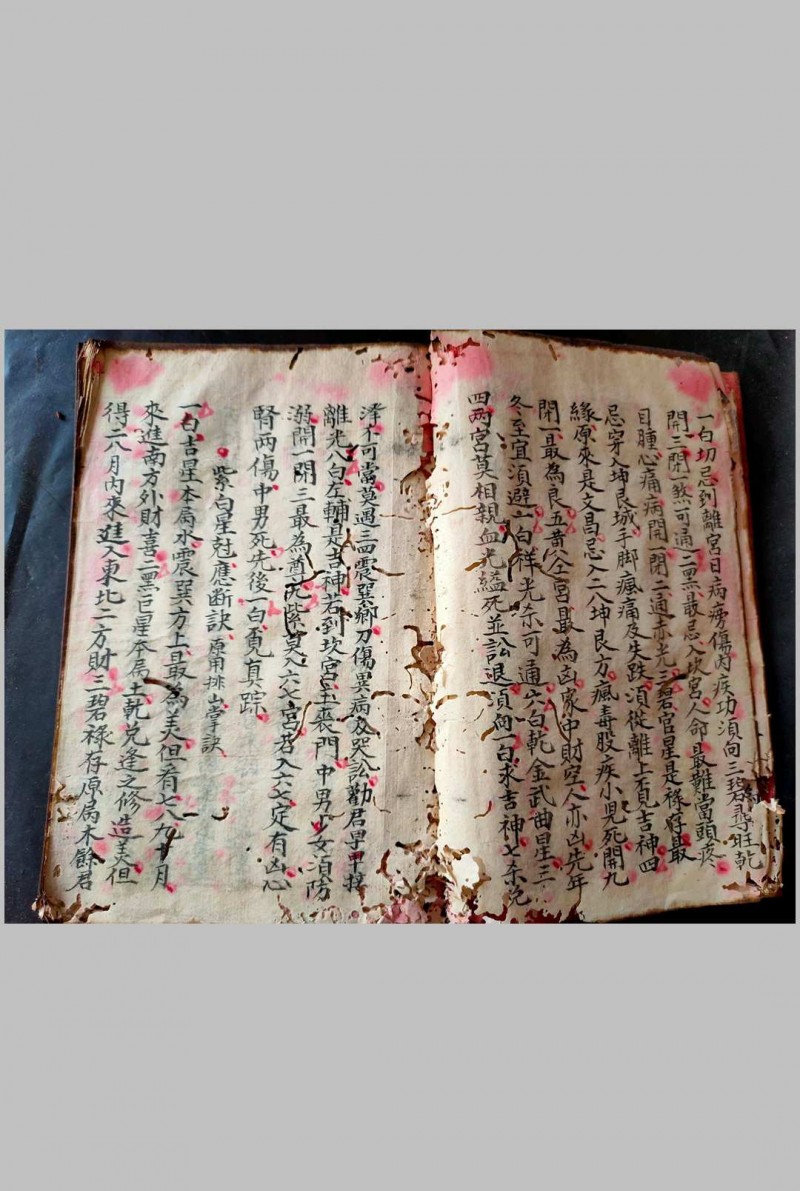 一白切忌到離宮目病癆傷肉疾功須向三碧尋旺乾
開三閉一煞可通二黑最忌入坎宮人命最難當頭疼
目腫心痛病開一閉二通赤光三碧官星是祿存最
忌穿入坤艮城手脚瘋痛及失跌須從離上看見吉神四
緣原來是文昌忌入二八坤艮方瘋毒股疾小児死開九
閉一最為良五黄仝宮最為凶家中財空人亦凶先年
冬至宜須避一白祥光奈可通六白乾金武曲星三
四两宮莫相親血光縊死並訟退須向一白求吉神七赤兌
澤不可當莫遇三四震巽鄉刀傷異病及哭訟勸君早早
離光八白左輔是吉神若到坎宮主喪門中男少女須防
溺開一閉三最為尊九紫莫入六七宮若入六七定有凶心
腎两傷中男死先後一白覓真踪
紫白星尅應断訣 原用排山掌訣
一白吉星本属水震巽方上最為美但看七八九十月
來進南方外財喜二黑巨星本属土乾兌逢之修造美但
得二八月内來進入東北二方財三碧祿存原属木餘君